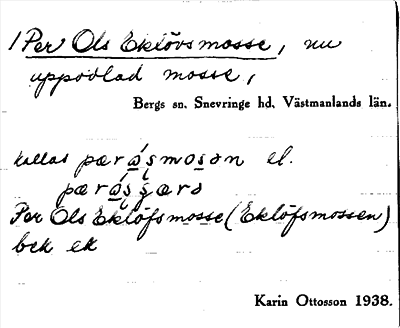 1 Per Ols Eklövsmosse, nu
uppodlad mosse,
Bergs sn. Snevringe hd. Västmanlands län.
kallas pæråsmosən el.
pæråsjærd
Per Ols Eklöfsmosse (Eklöfsmossen)
bek ek
Karin Ottosson 1938.